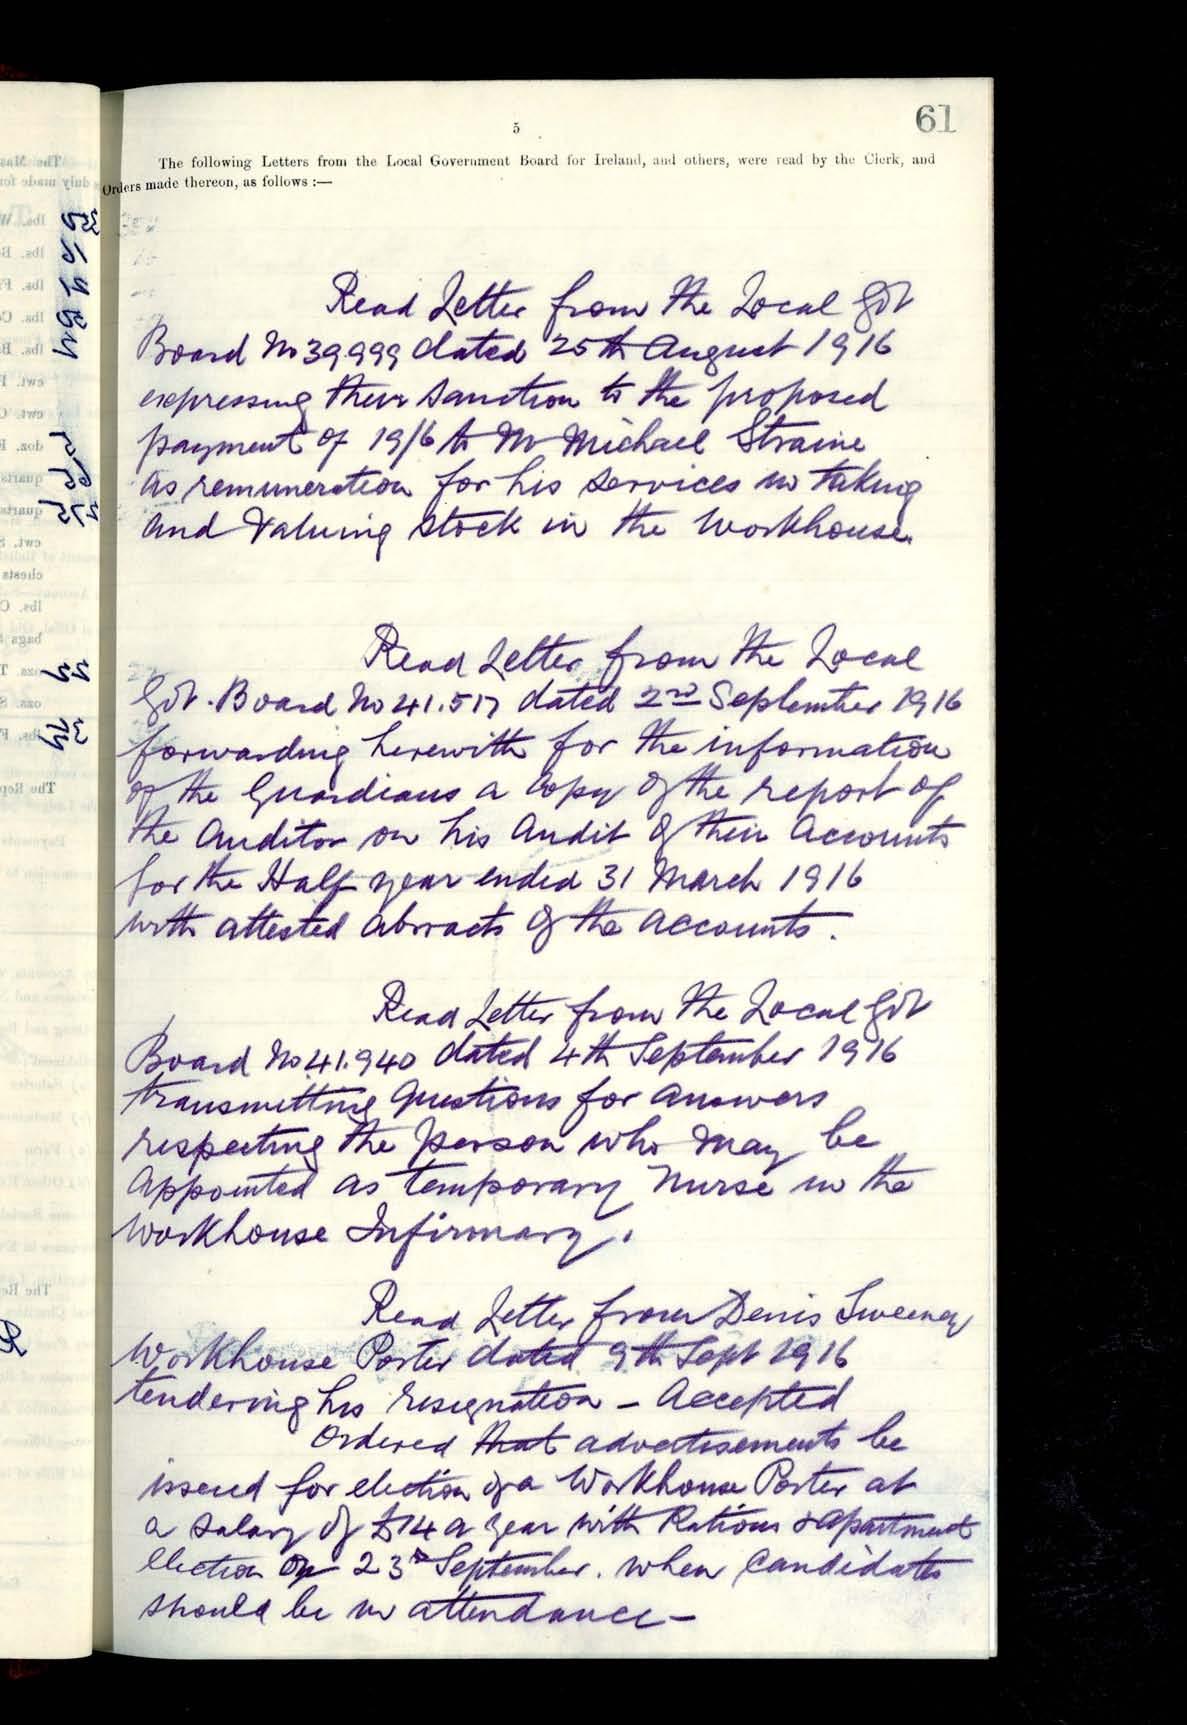 61
5
The following Letters from the Local Government Board for Ireland, and others, were read by the Clerk, and
Orders made thereon, as follows :—
Read Letter from the Local Govt
Board No 39999 dated 25th August 1916
expressing their sanction to the proposed
payment of 19/6 to Mr Michael Straine
as remuneration for his services in taking
and Valuing stock in the Workhouse.
Read Letter from the Local
Govt. Board No 41.517 dated 2nd September 1916
forwarding herewith for the information
of the Guardians a Copy of the report of
the Auditor on his Audit of their Accounts
for the Half year ended 31 March 1916
with attested abstracts of the accounts.
Read Letter from the Local Govt
Board No 41.940 dated 4th September 1916
transmitting questions for answers
respecting the person who may be
appointed as temporary Nurse in the
Workhouse Infirmary.
Read Letter from Denis Sweeney
Workhouse Porter dated 9th Sept 1916
tendering his resignation – Accepted
Ordered that advertisements be
issued for election of a Workhouse Porter at
a salary of £14 a year with Rations & apartment
Election on 23rd September. when Candidates
should be in attendance –